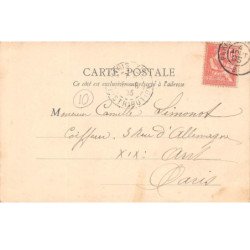 CARTE POSTALE
Ce côté est exclusivement réservé à l'adresse
10
Monsieur Camille Simonot
Coiffeur, 3 rue d'Allemagne
XIX: Arrt
Paris